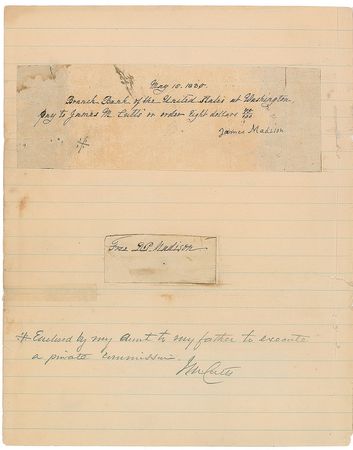 May 10. 1830.
Branch Bank of the United States at Washington
Pay to James M. Cutts or order Eight dollars
James Madison
#
Free D.P. Madison
# Enclosed by my Aunt to my father to execute
a private commission.
J M Cutts